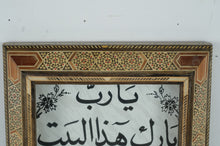 يا ربّ
بارك هذا البيت